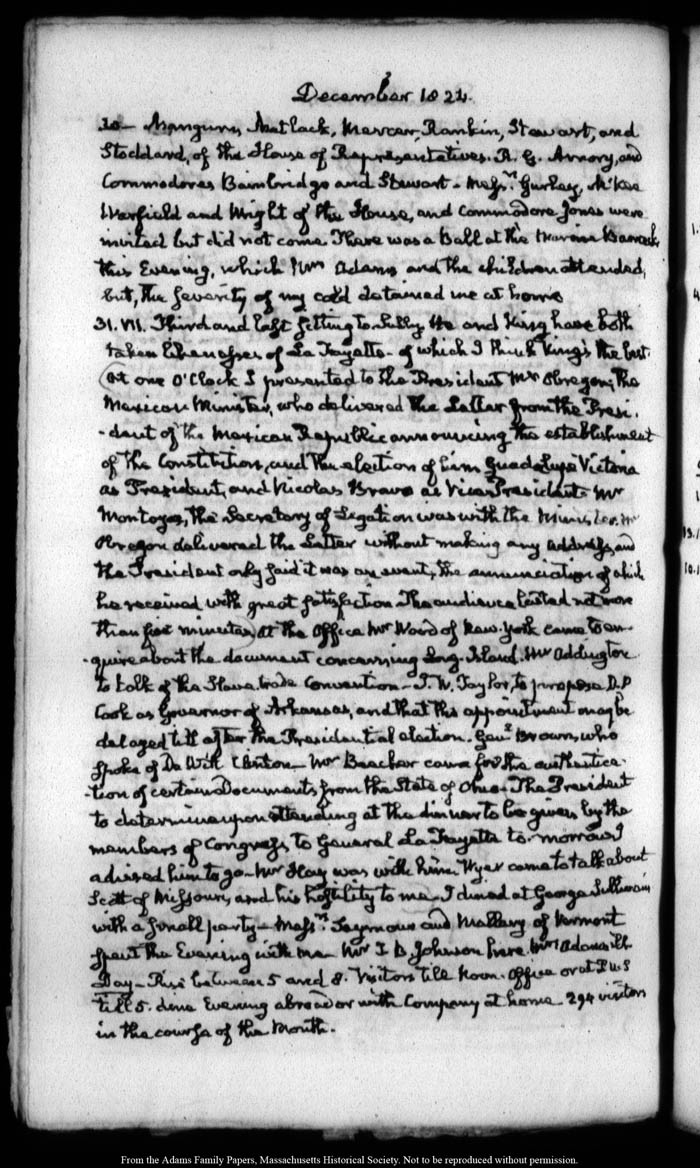 December 1824.
30 — Mangum, Matlack, Mercer, Rankin, Stewart, and
Stoddard, of the House of Representatives. R. G. Amory, and
Commodores Bainbridge and Stewart - Messrs. Gurley, McKee
Warfield and Wright of the House, and Commodore Jones were
invited but did not come. There was a Ball at the Marine Barracks
this Evening, which Mrs Adams and the children attended,
but, the severity of my cold detained me at home
31. VII. Third and last sitting to Sully. He and King have both
taken likenesses of La Fayette - of which I think King's the best.
At one O'Clock I presented to the President Mr Obregon, the
Mexican Minister, who delivered the Letter from the Presi-
-dent of the Mexican Republic announcing the establishment
of the Constitution, and the election of him Guadalupe Victoria
as President, and Nicolas Bravo as Vice President. Mr
Montoya, the Secretary of Legation was with the Minister. Mr
Obregon delivered the Letter without making any address, and
the President only said it was an event, the annunciation of which
he received with great satisfaction. The audience lasted not more
than five minutes. At the Office Mr Ward of New-York came to en-
-quire about the document concerning Long-Island. Mr Addington
to talk of the Slave trade Convention - J. W. Taylor, to propose D. P
Cook as Governor of Arkansas, and that this appointment may be
delayed till after the Presidential election. Genl. Brown, who
spoke of De Witt Clinton - Mr Beecher came for the authentica-
-tion of certain Documents from the State of Ohio - The President
to determine upon attending at the dinner to be given by the
members of Congress to General La Fayette to-morrow. I
advised him to go - Mr Hay was with him. Wyer came to talk about
Scott of Missouri, and his hostility to me. I dined at George Sullivan's
with a small party - Messrs. Seymour and Mallary of Vermont
spent the Evening with me - Mr J B Johnson here. Mrs Adams ill
Day - Rise between 5 and 8. Visitors till Noon. Office or at
till 5. dine Evening abroad or with Company at home. 294 visitors
in the course of the Month.
From the Adams Family Papers, Massachusetts Historical Society. Not to be reproduced without permission.